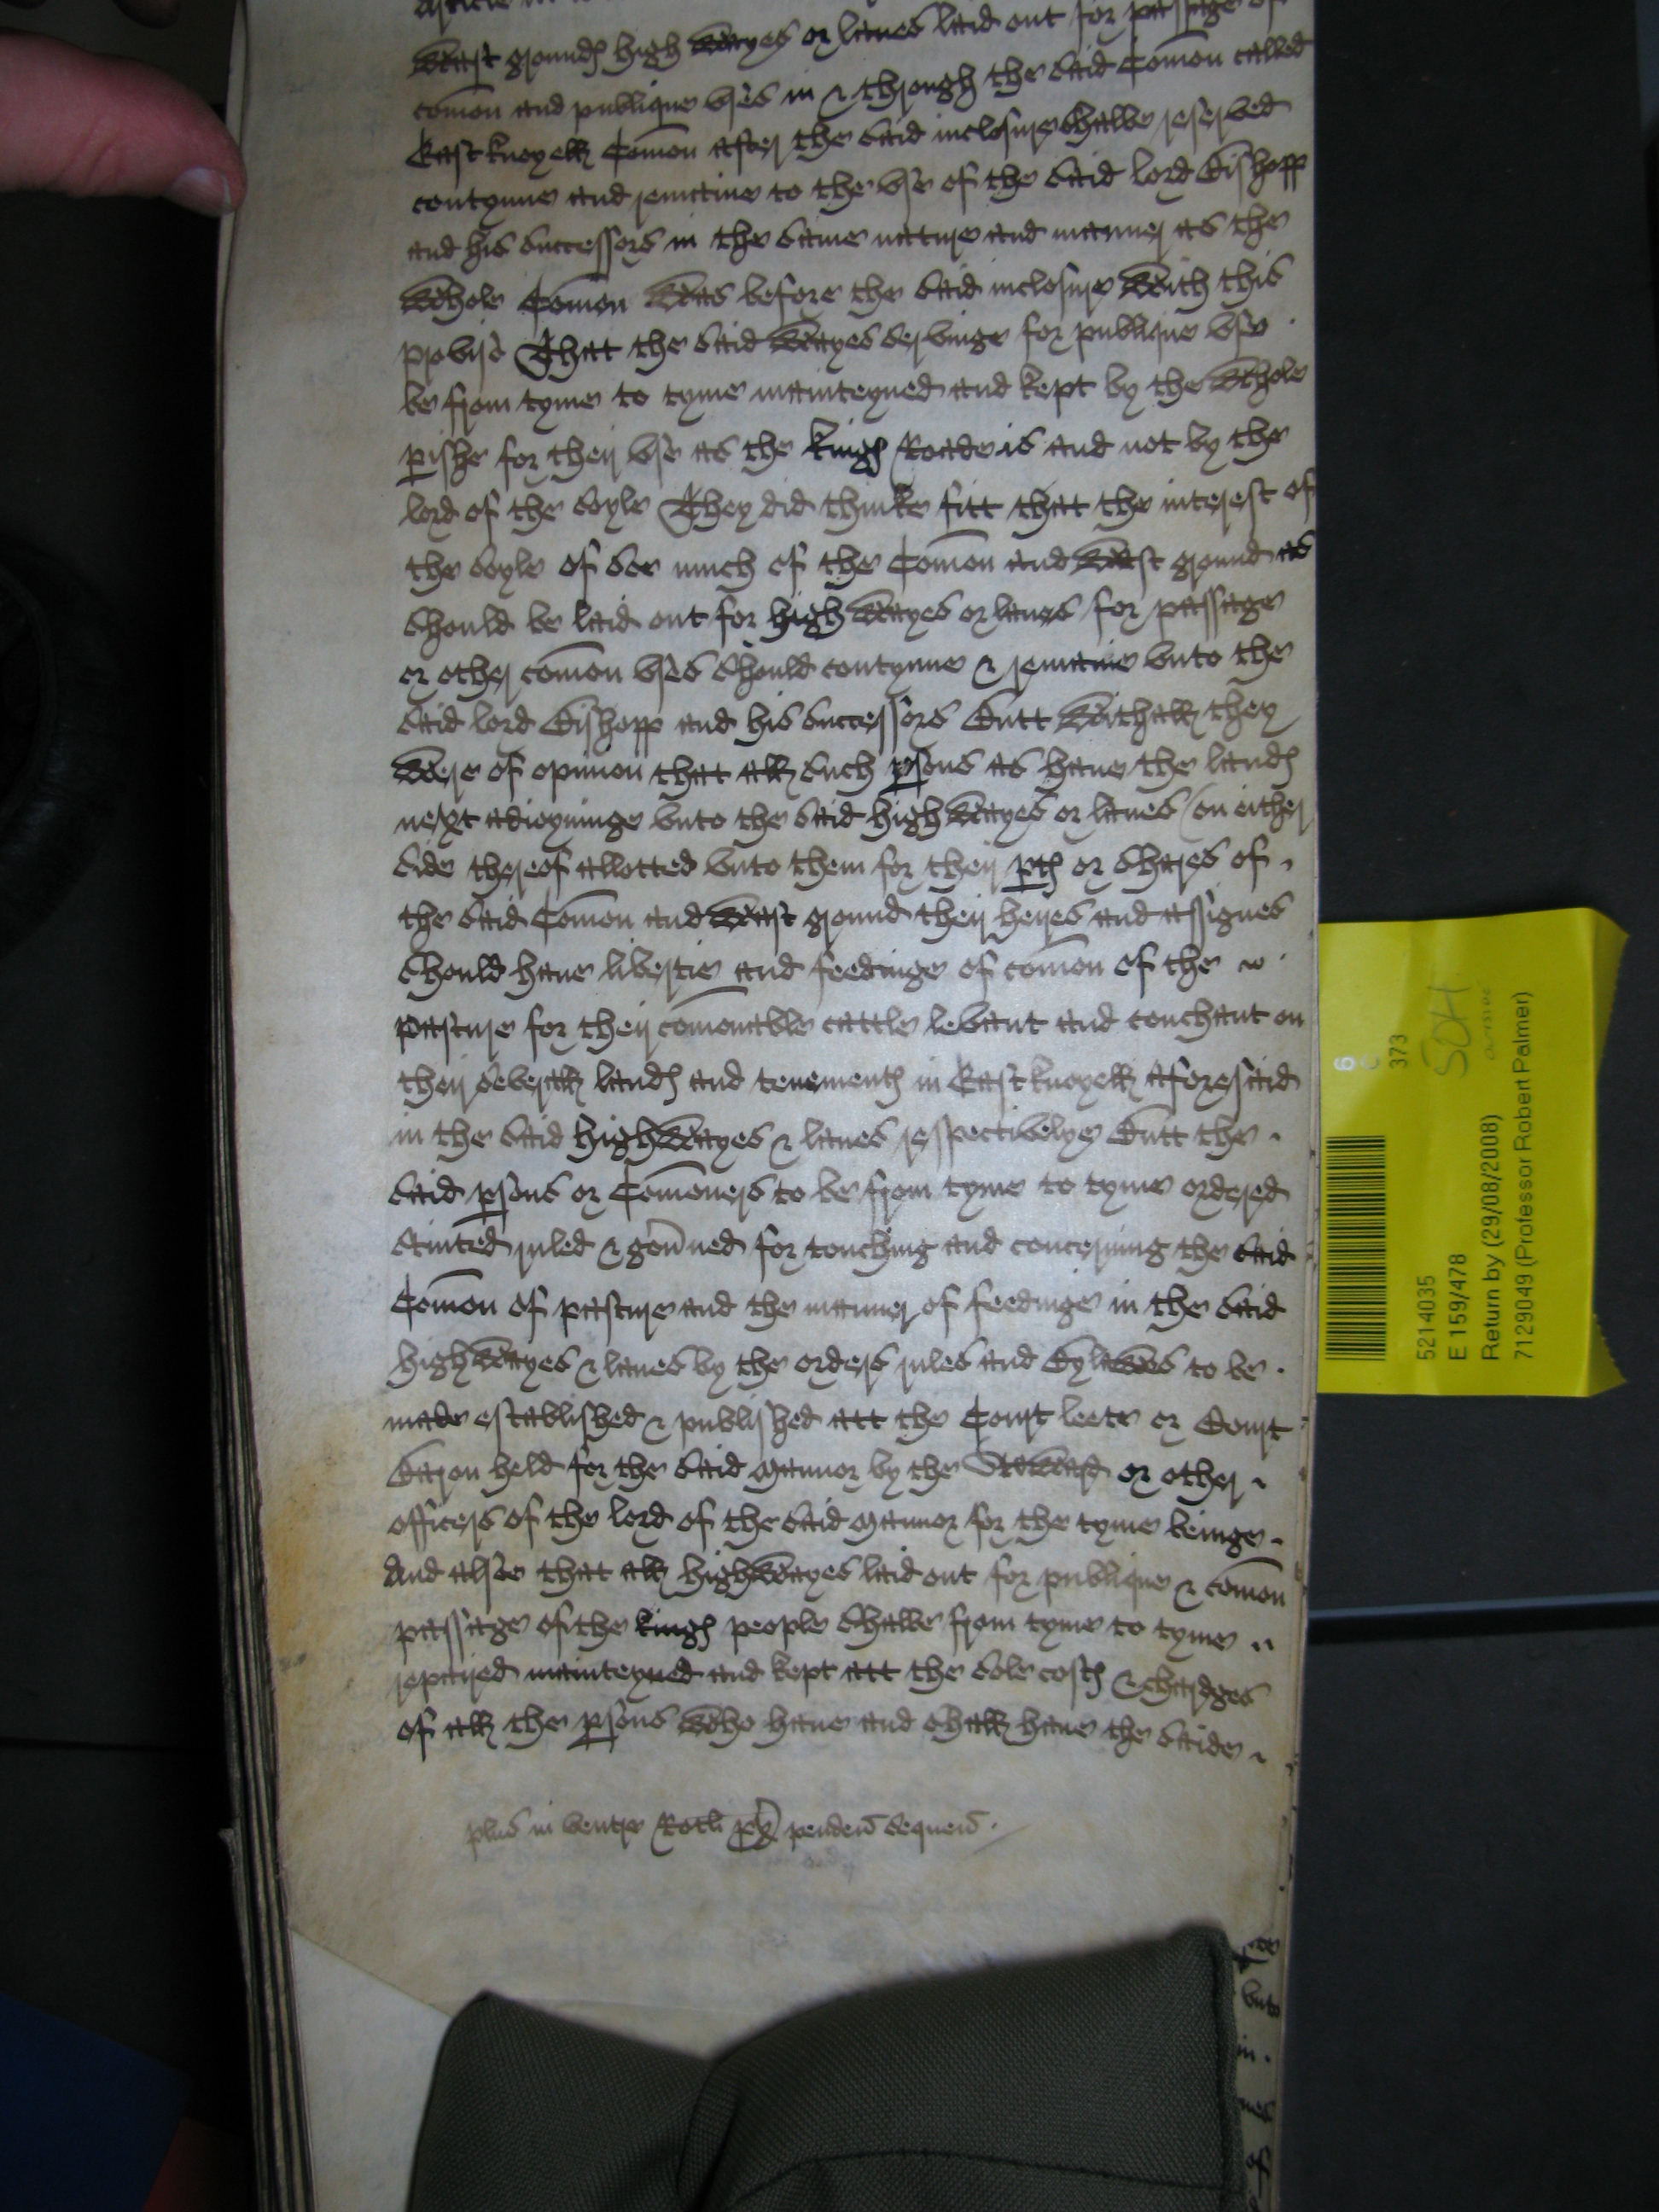 Article
wast ground(es) high wayes or lanes laid out for passage of
com̄on and publique vses in & through the said Com̄on called
Eastknoyell Com̄on after the said inclosure shalbe reserved
contynue and remaine to the vse of the said lord Bishopp
and his successors in the same nature and manner as the
whole Com̄on was before the said inclosure with this
proviso That the said wayes servinge for publique vse
be from tyme to tyme mainteyned and kept by the whole
pishe for their vse as the king(es) Roade is and not by the
lord of the soyle They did thinke fitt that the interest of
the soyle of soe much of the Com̄on and wast ground as
should be laid out for high wayes or lanes for passage
or other com̄on vses should contynue & remaine vnto the
said lord Bishopp and his successors Butt withall they
were of opinion that all such psons as haue the land(es)
next adioyninge vnto the said high wayes or lanes on either
side thereof allotted vnto them for their pt(es) or shares of
the said Com̄on and wast ground their heires and assignes
should haue libertie and feedinge of com̄on of the
pasture for their com̄onable cattle levant and couchant on
their severall land(es) and tenement(es) in Eastknoyell aforesaid
in the said highwayes & lanes respectivelye Butt the
said psons or Com̄oners to be from tyme to tyme ordered
stinted ruled & gou̅ned for touching and concerning the said
Com̄on of pasture and the manner of feedinge in the said
highwayes & lanes by the orders rules and Bylawes to be
made established & published att the Court leete or Court
Baron held for the said Mannor by the Steward or other
officers of the lord of the said Mannor for the tyme beinge
And alsoe that all highwayes laid out for publique & com̄on
passage of the king(es) people shalbe from tyme to tyme
repaired mainteyned and kept att the sole cost(es) & chardges
of all the psons who haue and shall haue the saide
plus in ventre Rotli px̄ penden̄ sequen̄
6
C
373
SOH
5214035
E 159/478
Return by (29/08/2008)
7129049 (Professor Robert Palmer)
vnto
in
of